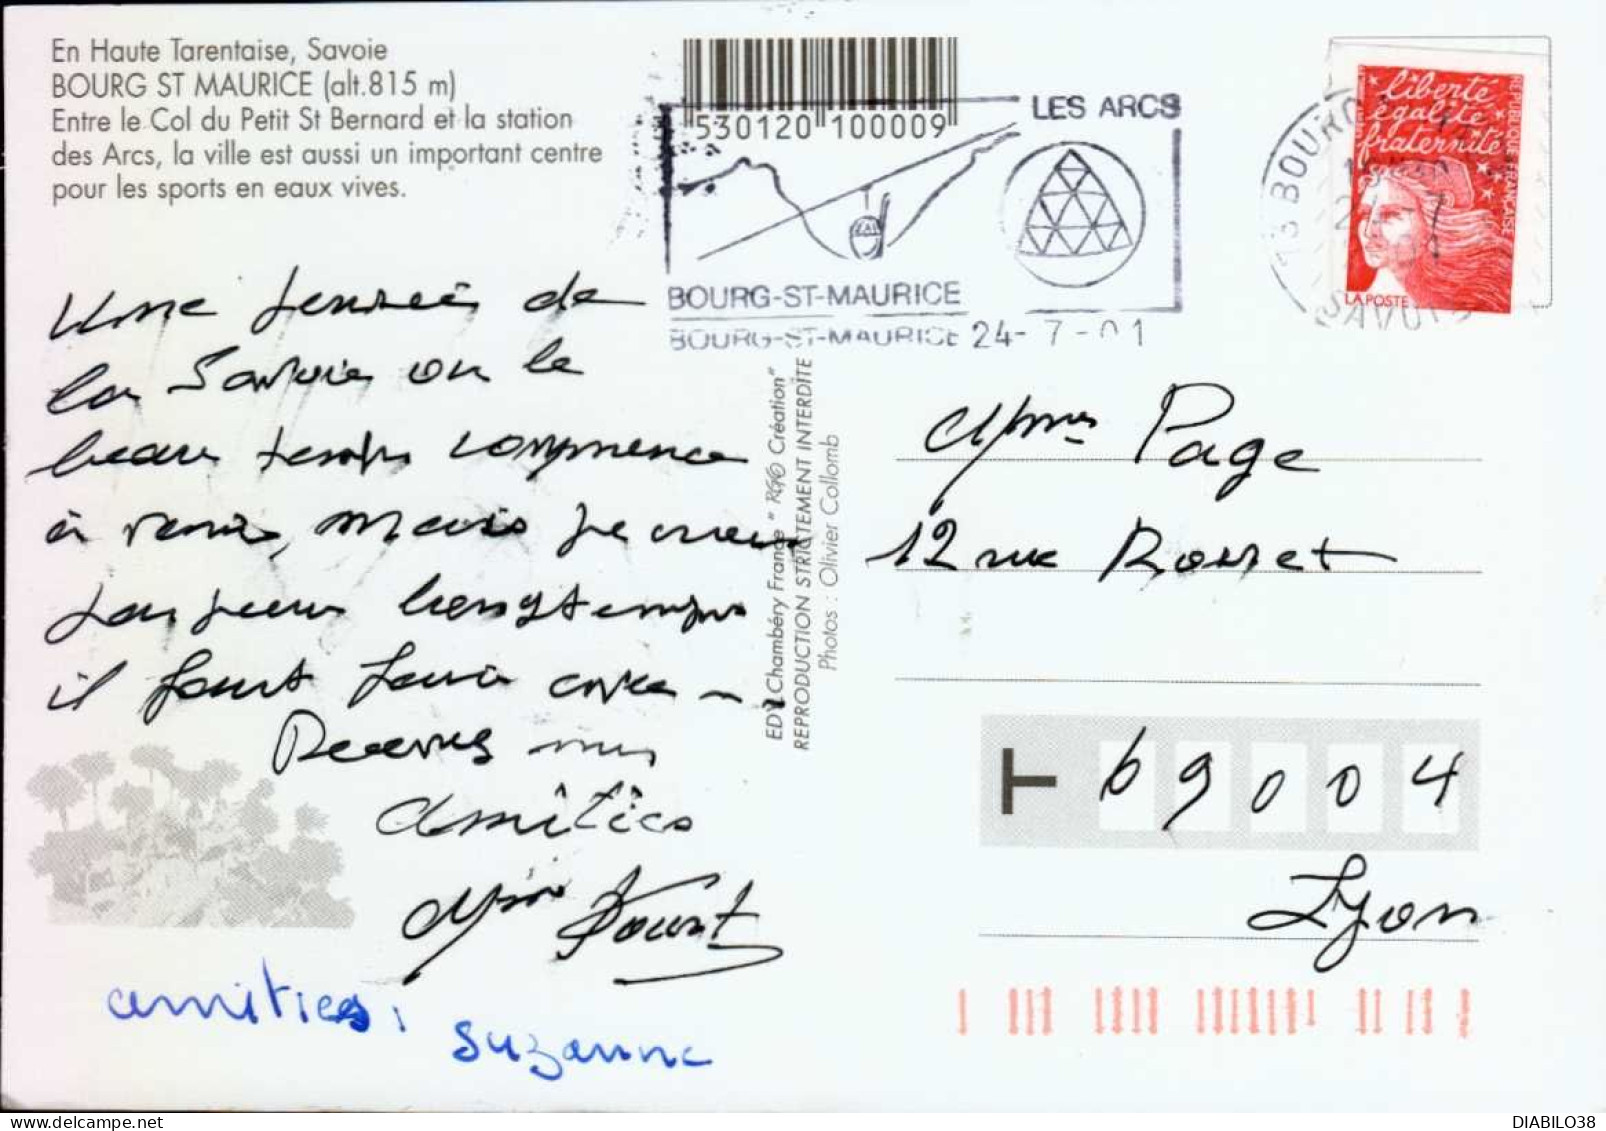 En Haute Tarentaise, Savoie
BOURG ST MAURICE (alt.815 m)
Entre le Col du Petit St Bernard et la station
des Arcs, la ville est aussi un important centre
pour les sports en eaux vives.
530120 100009
LES ARCS
BOURG-ST-MAURICE
BOURG-ST-MAURICE 24-7-01
73 BOURG
SAVOIE
liberté
égalité
fraternité
REPUBLIQUE FRANÇAISE
LA POSTE
Une pensée de
la Savoie ou le
beau temps commence
à venir, mais je ne
longtemps
il faut
Recevez mes
amitiés
Mme
amitiés,
suzanne
EDY Chambéry France "RGO Création"
REPRODUCTION STRICTEMENT INTERDITE
Photos : Olivier Collomb
Mme Page
12 rue Rosset
T 69004
Lyon
DIABILO38